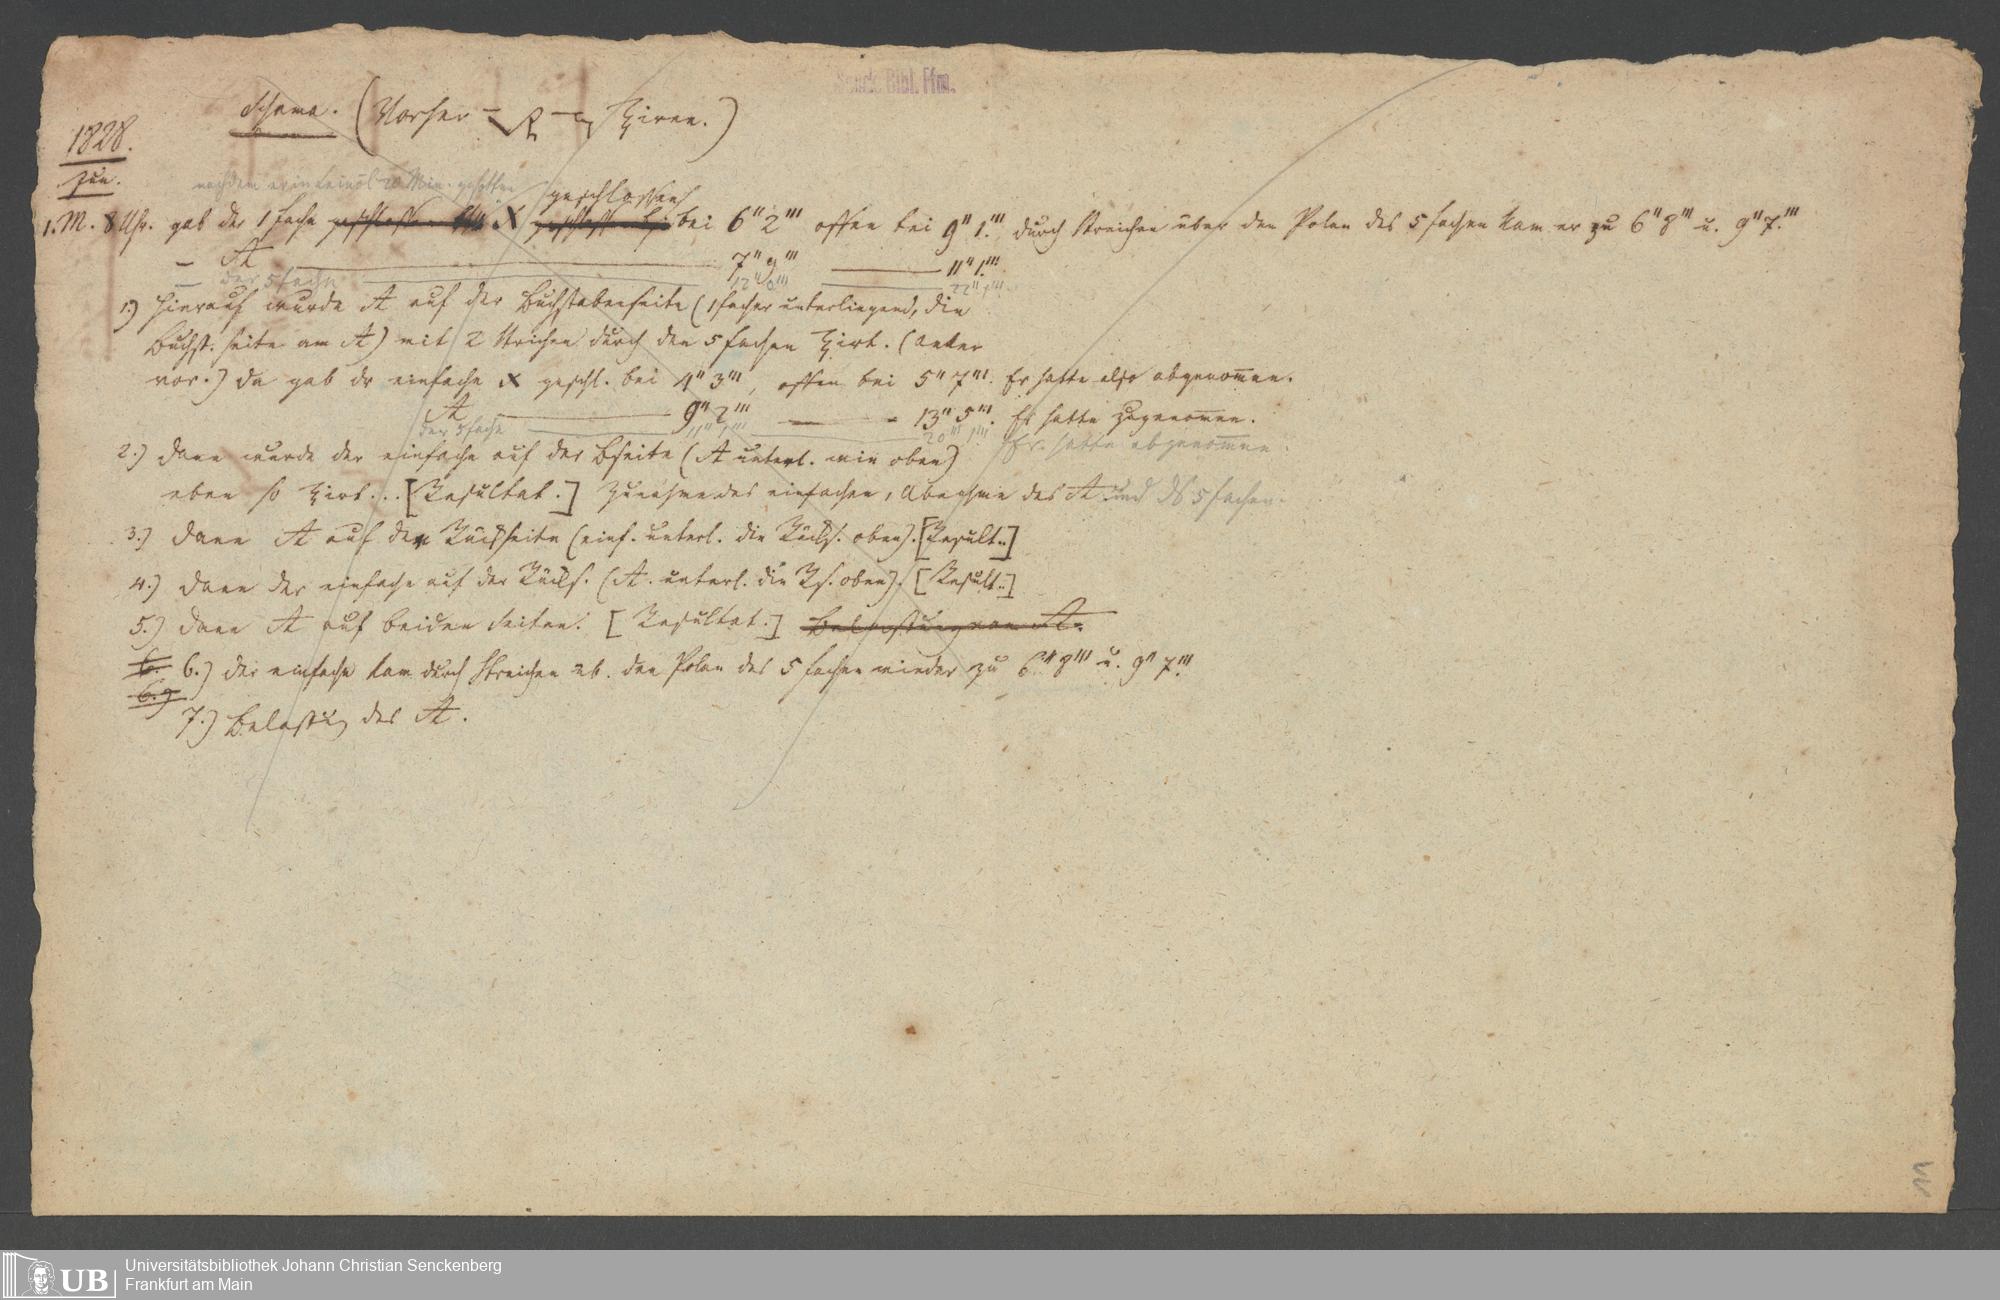 Senck. Bibl. Ffm.
Schema. (Vorher
1828.
Jun.
nachdem er in Leinöl 20 Min. gesotten
geschlossen
1. M. 8 Uhr. gab der 1 fache bei 6" 2''' offen bei 9" 1.''' durch Streichen über den Polen des 5 fachen kam er zu 6" 8''' u. 9" 7.'''
– A 7" 9''' 11" 1.'''
– der 5 fache 12" 22" 1'''
1.) Hierauf wurde A auf der Buchstabenseite (1 facher unterliegend, die
Buchst. seite am A) mit 2 Strichen durch den 5 fachen (Anker
vor.) da gab dr einfache geschl. bei 4" 3''', offen bei 5" 7'''. Er hatte also abgenom̅en.
A 9" 2''' 13" 5'''. Er hatte zugenom̅en.
der 5 fache 11" 1''' 20 Er hatte abgenom̅en
2.) dann wurde der einfache auf der Bseite (A unterl. oben)
eben so ... [Resultat.] Zunahme des einfachen, Abnahme des A und ds 5 fachen.
3.) dann A auf der Rückseite (einf. unterl. die Rücks. oben). [Result..]
4.) dann der einfache auf der Rücks. (A. unterl. die Rs. oben). [Result..]
5.) dann A auf beiden Seiten. [Resultat.] Belastung von A.
6. 6.) der einfache kam durch Streichen üb. den Polen des 5 fachen wieder zu 6" 8''' u. 9" 7.'''
6.
7.) Belastung des A.
UB
Universitätsbibliothek Johann Christian Senckenberg
Frankfurt am Main